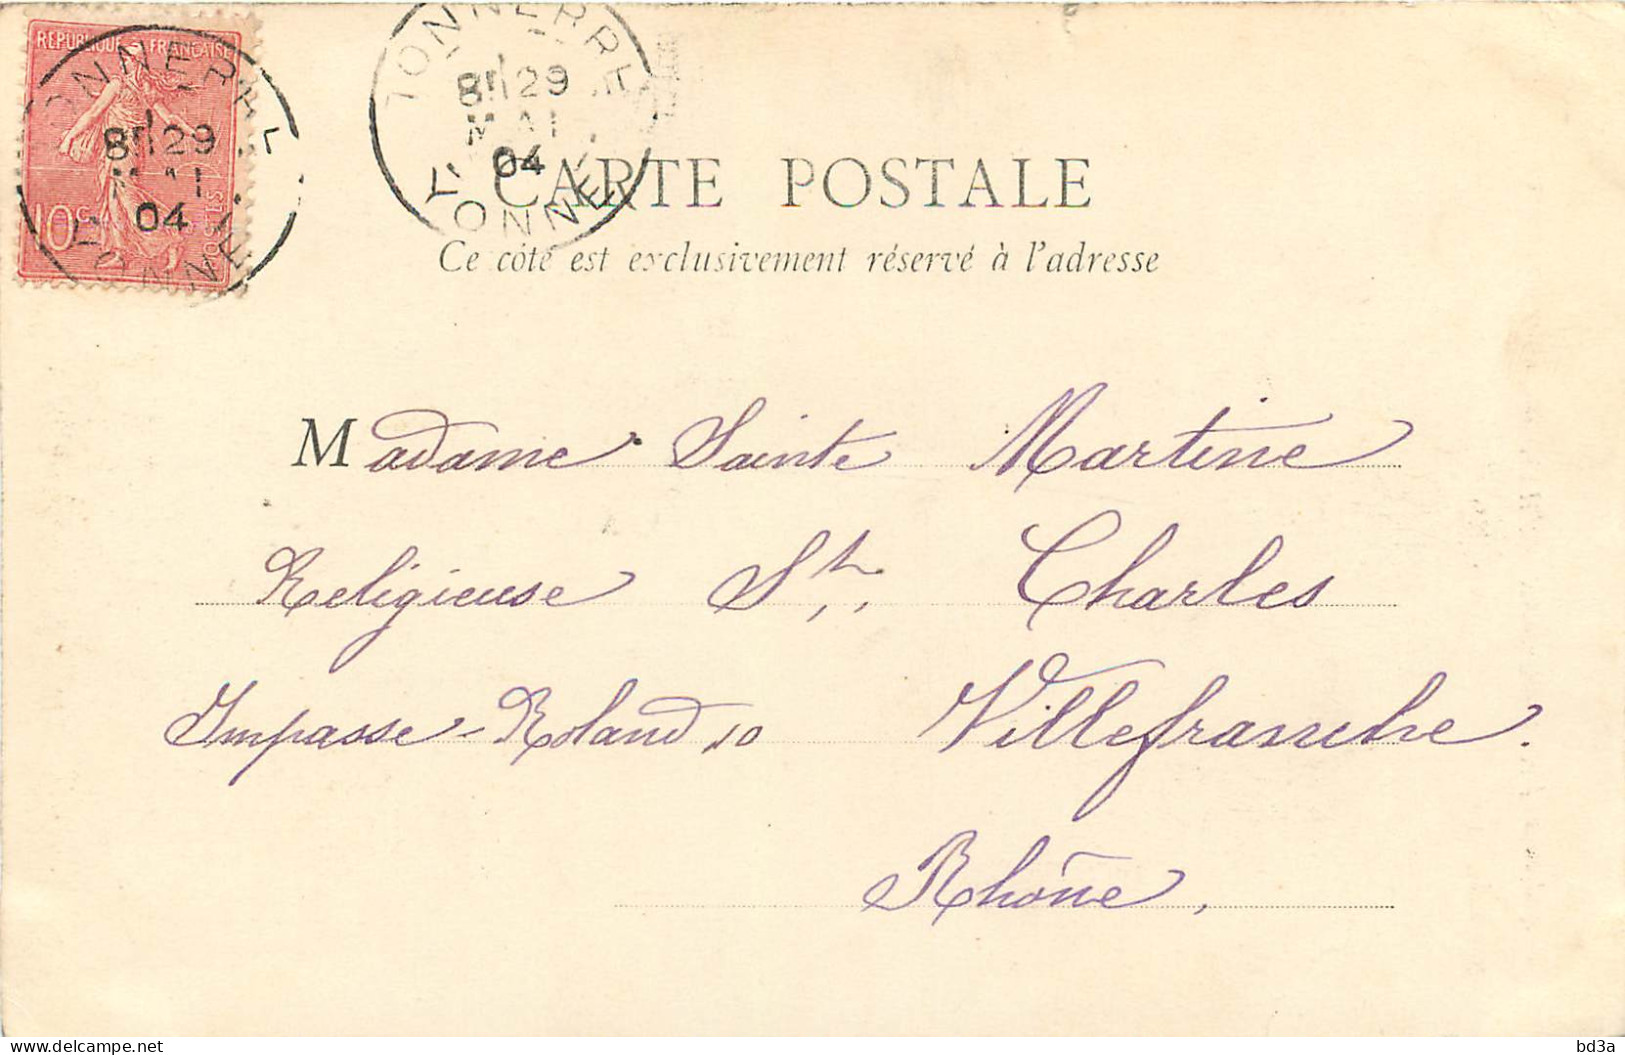 REPUBLIQUE FRANCAISE
10c
POSTES
TONNERRE
29
MAI
04
YONNE
TONNERRE
29
MAI
04
YONNE
CARTE POSTALE
Ce côté est exclusivement réservé à l'adresse
Madame Sainte Martine
Religieuse St, Charles
Impasse-Roland, 10 Villefranche.
Rhône,
bd3a